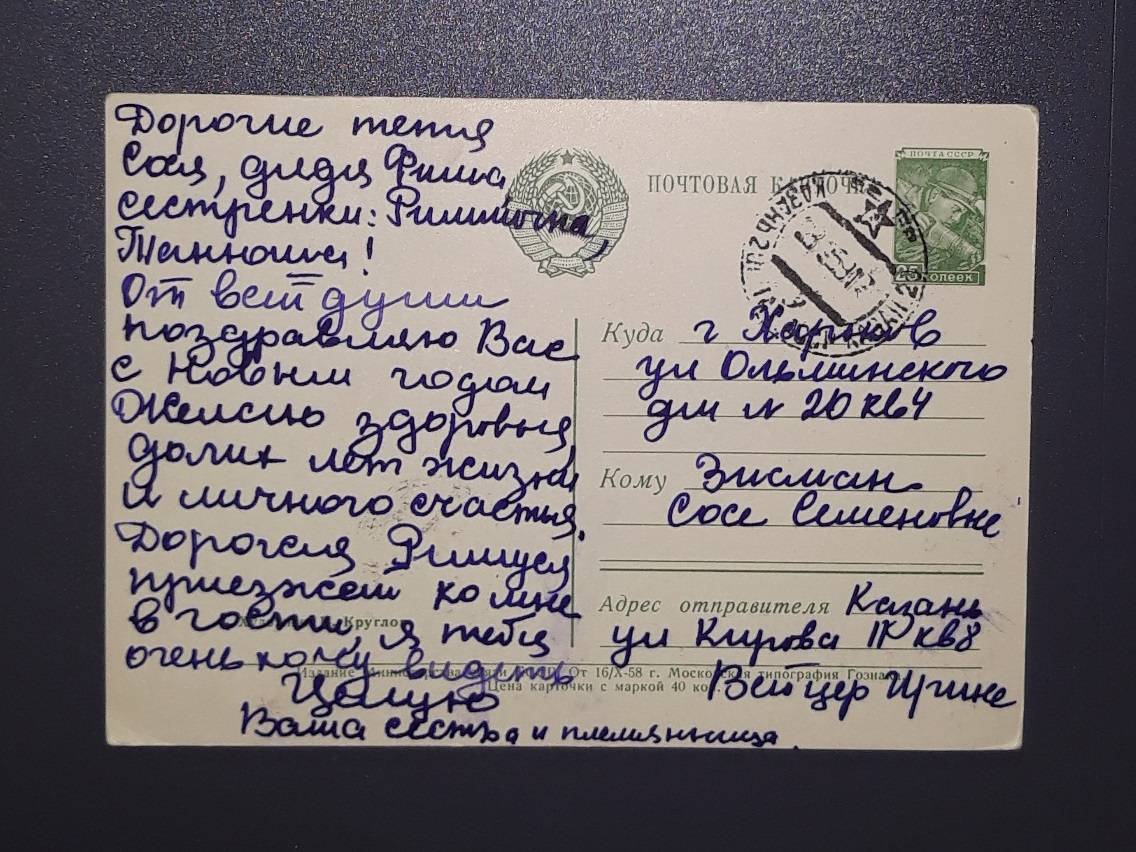 Дорогие тетя
Сая, дядя Фима
сестренки: Риммочка,
Таннюша!
От всей души
поздравляю Вас
с Новым годом
Желаю здоровья,
долгих лет жизни
и личного счастья.
Дорогая Римуся
приезжай ко мне
в гости, я тебя
очень хочу видеть
Целую
Ваша сестра и племянница.
ПОЧТОВАЯ КАРТОЧКА
ПОЧТА СССР
25 КОПЕЕК
КАЗАНЬ
Куда г Харьков
ул Ольминского
дм № 20 кв 4
Кому Зисман
Сосе Семеновне
Адрес отправителя Казань
ул Кирова кв 8
Вейцер Ирине
Круглов
Издание От 16/X-58 г. Московская типография Гознака.
Цена карточки с маркой 40 коп.